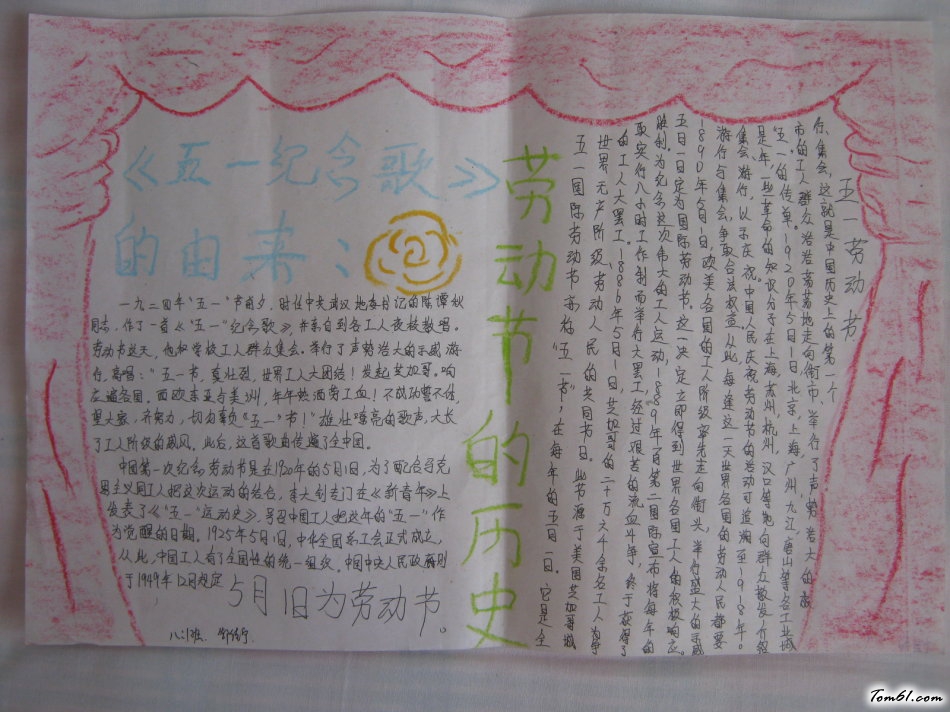 《五一纪念歌》
的由来：
一九二四年"五一"节前夕，时任中共武汉地委书记的陈潭秋
同志，作了一首《"五一"纪念歌》，并亲自到各工人夜校教唱。
劳动节这天，他和学校工人群众集会。举行了声势浩大的示威游
行，高唱："五一节，真壮烈，世界工人大团结！发起芝加哥。响
应遍各国。西欧东亚与美洲，年年热洒劳工血！不成功誓不休，
望大家，齐努力，切勿辜负《五一"节！"雄壮嘹亮的歌声，大长
了工人阶级的威风，此后，这首歌曲传遍了全中国。
中国第一次纪念劳动节是在1920年的5月1日，为了配合马克
思主义同工人把这次运动的结合，李大钊专门在《新青年》上
发表了《"五一"运动史》，号召中国工人把这年的"五一"作
为觉醒的日期。1925年5月1日，中华全国总工会正式成立，
从此，中国工人有了全国性的统一组织。中国中央人民政府则
于1949年12月规定
5月1日为劳动节。
八、3班
劳动节的历史
五一劳动节
五一国际劳动节亦称"五一节"，在每年的五月一日。它是全
世界无产阶级劳动人民的共同节日。此节源于美国芝加哥城
的工人大罢工。1886年5月1日，芝加哥的二十万六千余名工人为争
取实行八小时工作制而举行大罢工，经过艰苦的流血斗争，终于获得了
胜利。为纪念这次伟大的工人运动，1889年7月第二国际宣布将每年的
五月一日定为国际劳动节。这一决定立即得到世界各国工人的积极响应。
1890年5月1日，欧美各国的工人阶级率先走向街头，举行盛大的示威
游行与集会，争取合法权益。从此，每逢这一天世界各国的劳动人民都要
集会、游行，以示庆祝。中国人民庆祝劳动节的活动可追溯至1918年。
是年，一些革命的知识分子在上海、苏州、杭州、汉口等地向群众散发介绍
"五一"的传单。1920年5月1日，北京、上海、广州、九江、唐山等各工业城
市的工人群众浩浩荡荡地走向街市、举行了声势浩大的游
行、集会，这就是中国历史上的第一个
Tom61.com